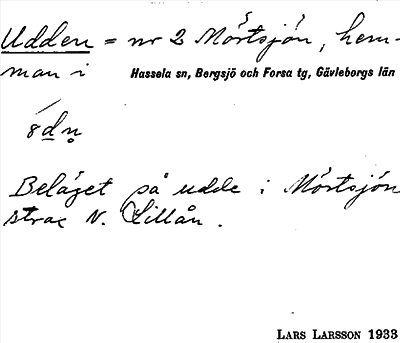 Udden = nr 2 Mörtsjön, hem-
man i Hassela sn, Bergsjö och Forsa tg, Gävleborgs län
Beläget på udde i Mörtsjön
strax N. Lillån.
LARS LARSSON 1933